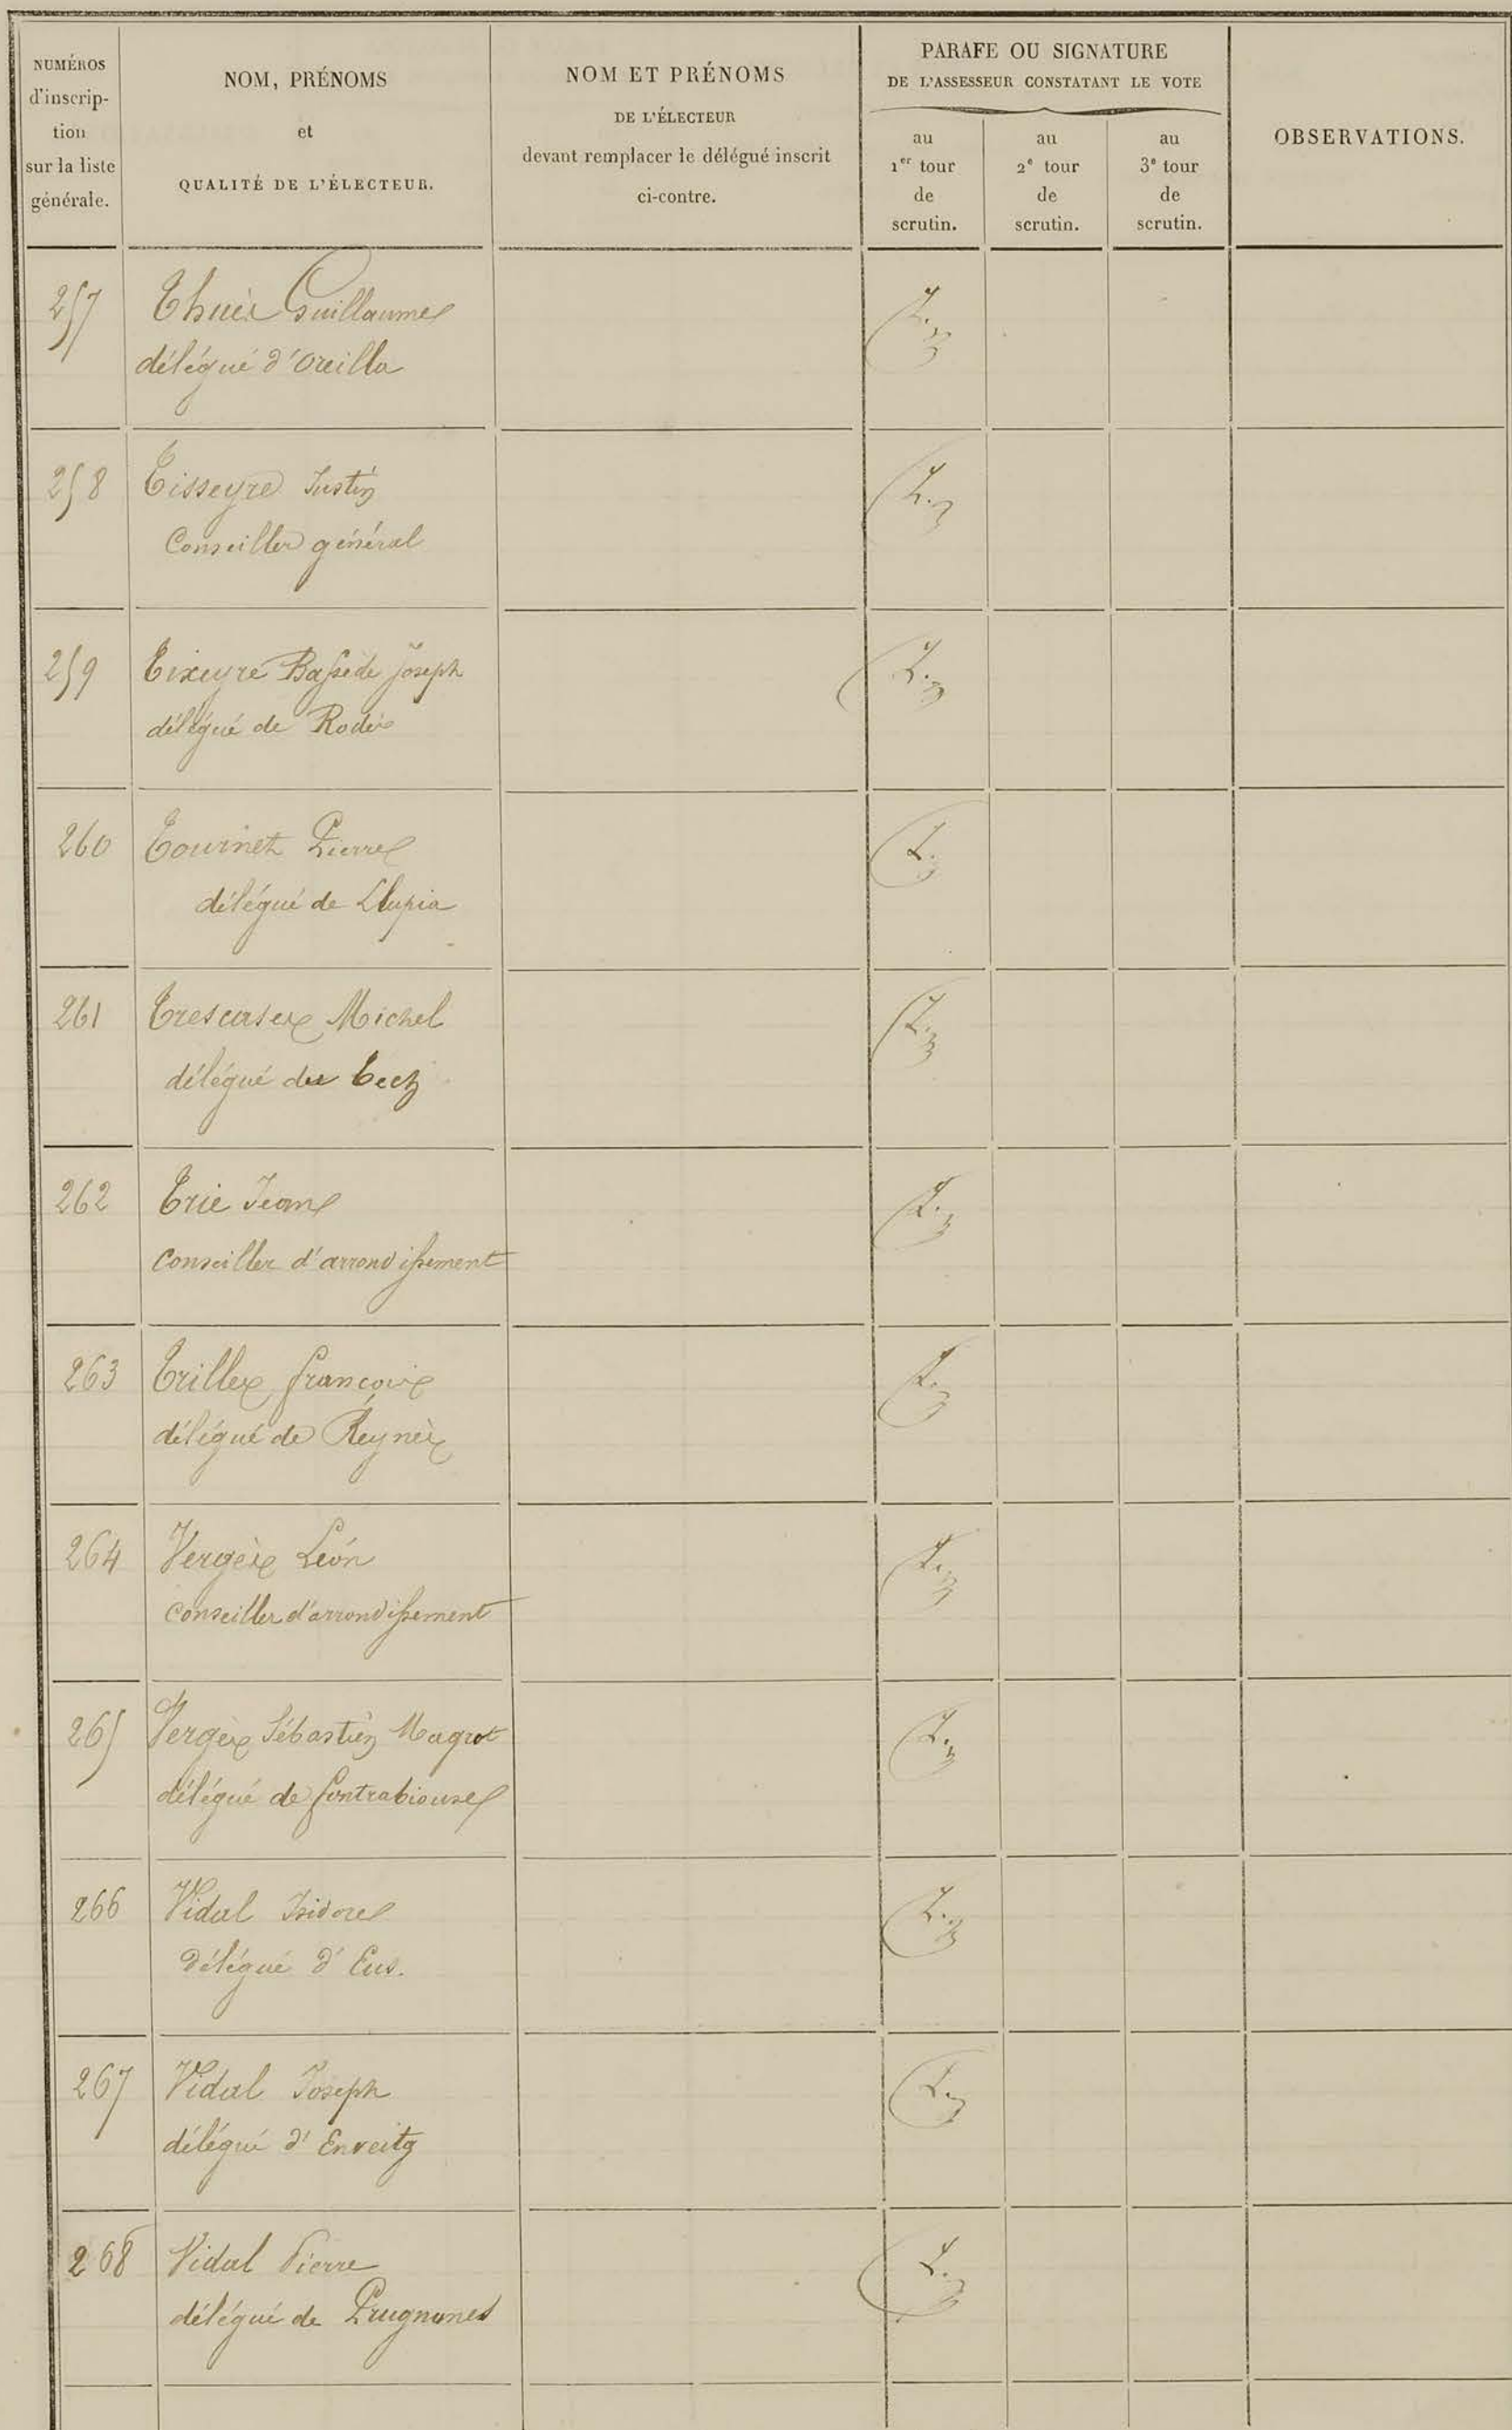 NUMÉROS
d'inscrip-
tion
sur la liste
générale.
NOM, PRÉNOMS
et
QUALITÉ DE L'ÉLECTEUR.
NOM ET PRÉNOMS
DE L'ÉLECTEUR
devant remplacer le délégué inscrit
ci-contre.
PARAFE OU SIGNATURE
DE L'ASSESSEUR CONSTATANT LE VOTE
au
1er tour
de
scrutin.
au
2e tour
de
scrutin.
au
3e tour
de
scrutin.
OBSERVATIONS.
257 Thuès Guillaume
délégué d'Oreilla
258 Tisseyre Justin
Conseiller général
259 Tixeyre Bassède Joseph
délégué de Rodès
260 Tournet Pierre
délégué de Llupia
261 Trescases Michel
délégué du Tech
262 Trie Jean
Conseiller d'arrondissement
263 Trilles françois
délégué de Reynès
264 Vergès Léon
Conseiller d'arrondissement
265 Vergès Sébastien Magrot
délégué de fontrabiouse
266 Vidal Isidore
délégué d'Eus.
267 Vidal Joseph
délégué d'Enveitg
268 Vidal Pierre
délégué de Prugnanes